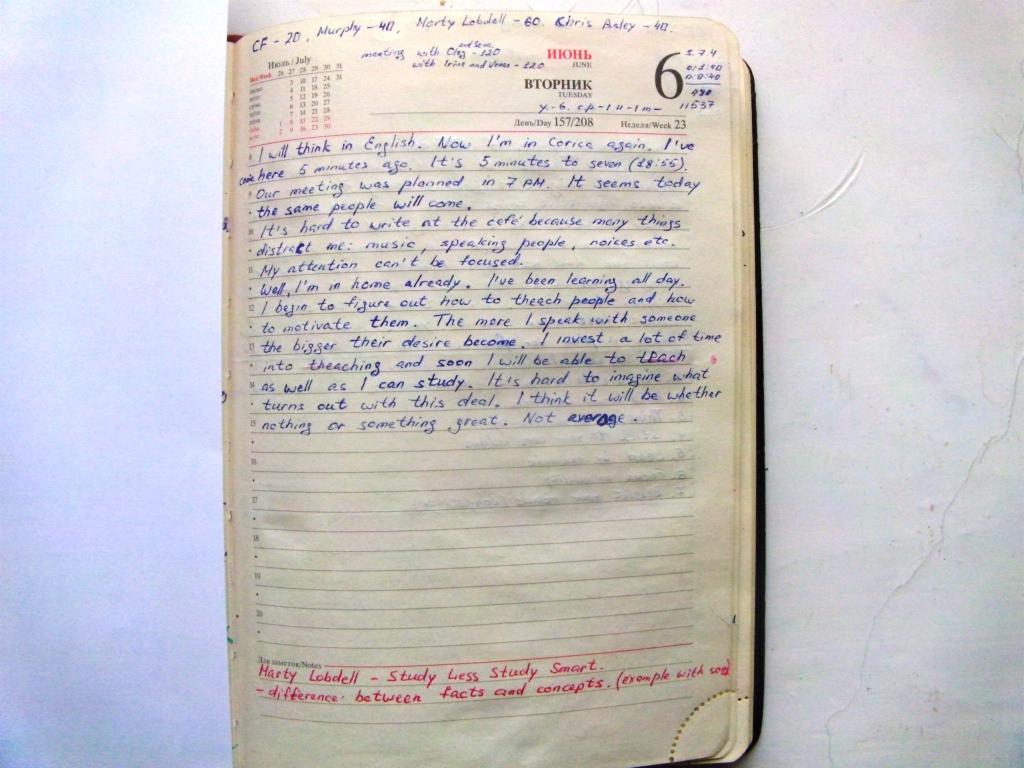 CF - 20, Murphy - 40, Marty Lobdell - 60. Chris Baley - 40.
meeting with Oleg and Seva - 120
with Irina and Venus - 120
Июль / July
ИЮНЬ
JUNE
ВТОРНИК
TUESDAY
6
5.74
490
11537
День/Day 157/208
Неделя/Week 23
I will think in English. Now I'm in Corica again. I've
come here 5 minutes ago. It's 5 minutes to seven (18:55).
Our meeting was planned in 7 PM. It seems today
the same people will come.
It's hard to write at the café because many things
distract me: music, speaking people, noices etc.
My attention can't be focused.
Well, I'm in home already. I've been learning all day.
I begin to figure out how to theach people and how
to motivate them. The more I speak with someone
the bigger their desire become. I invest a lot of time
into theaching and soon I will be able to teach
as well as I can study. It's hard to imagine what
turns out with this deal. I think it will be whether
nothing or something great. Not average.
8
9
10
11
12
13
14
15
16
17
18
19
20
Для заметок/Notes
Marty Lobdell - Study Less Study Smart.
- difference between facts and concepts. (example with